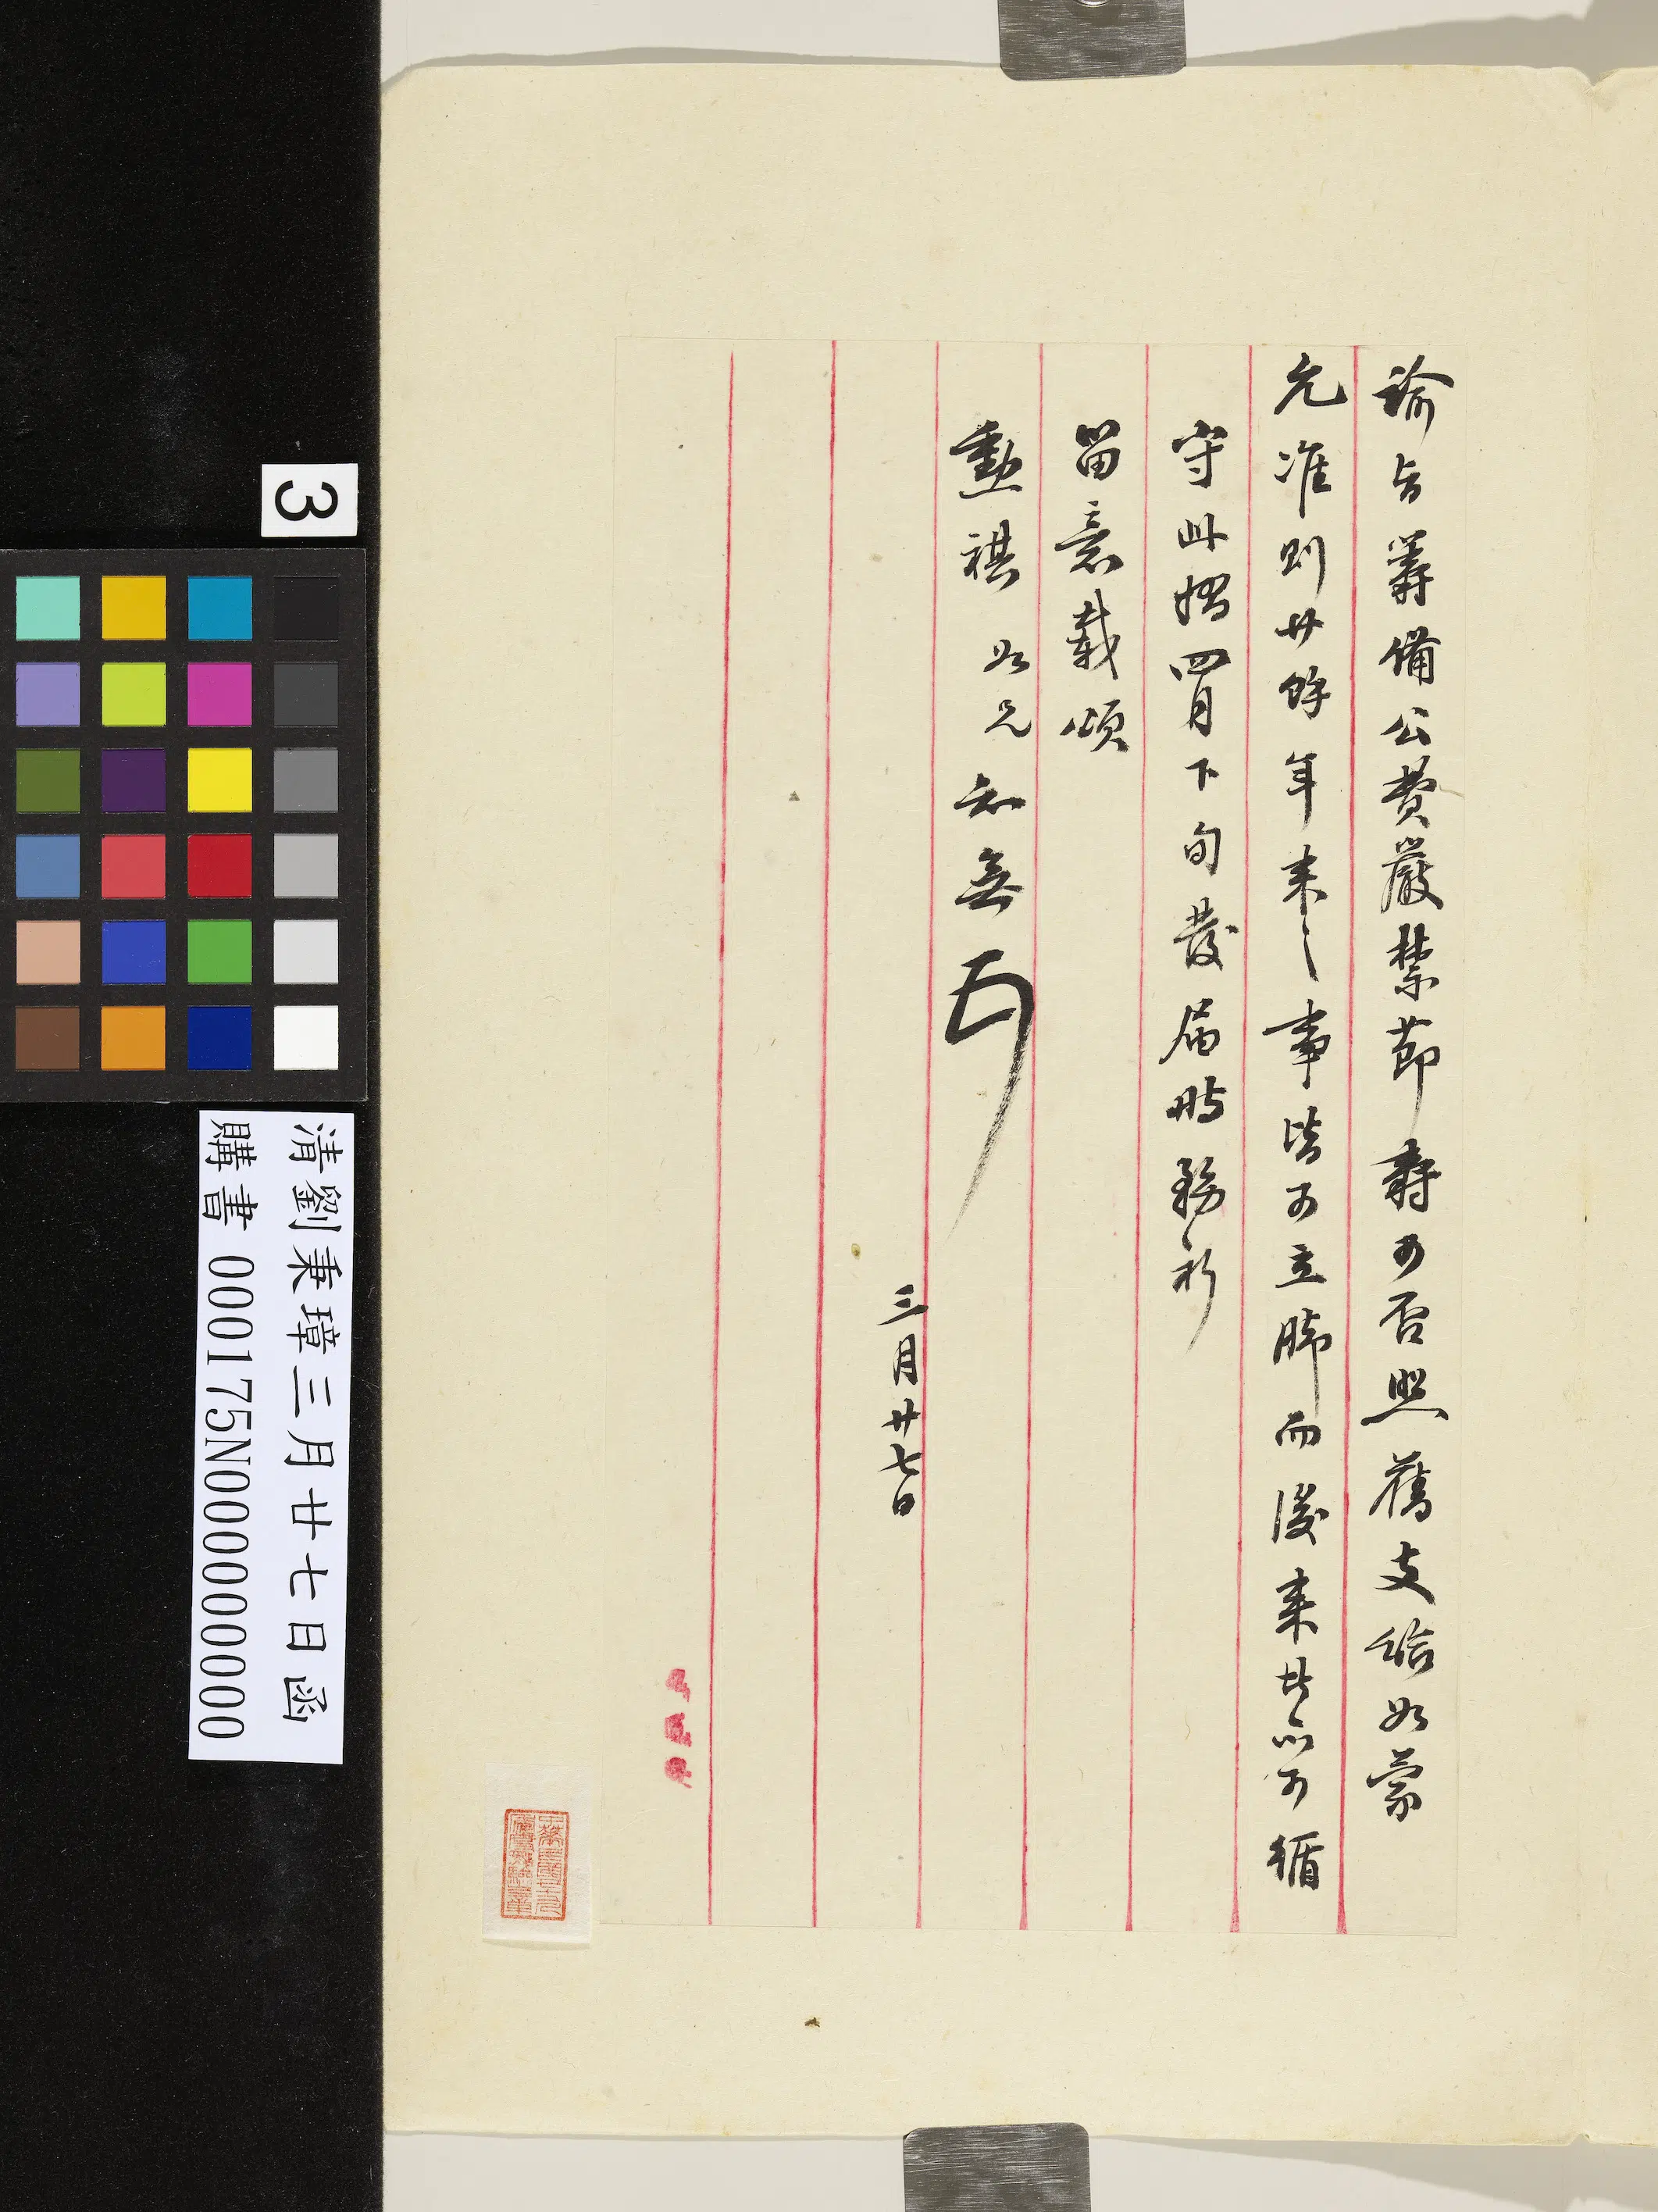 諭旨籌備公費嚴禁節壽可否照舊支給如蒙
允准則廿餘年來之事皆可立腳而後來者亦可循
守此摺四月下旬發屆時務祈
留意載頌
勳祺 如兄
三月廿七日
3
清劉秉璋三月廿七日函
購書 000175N000000000